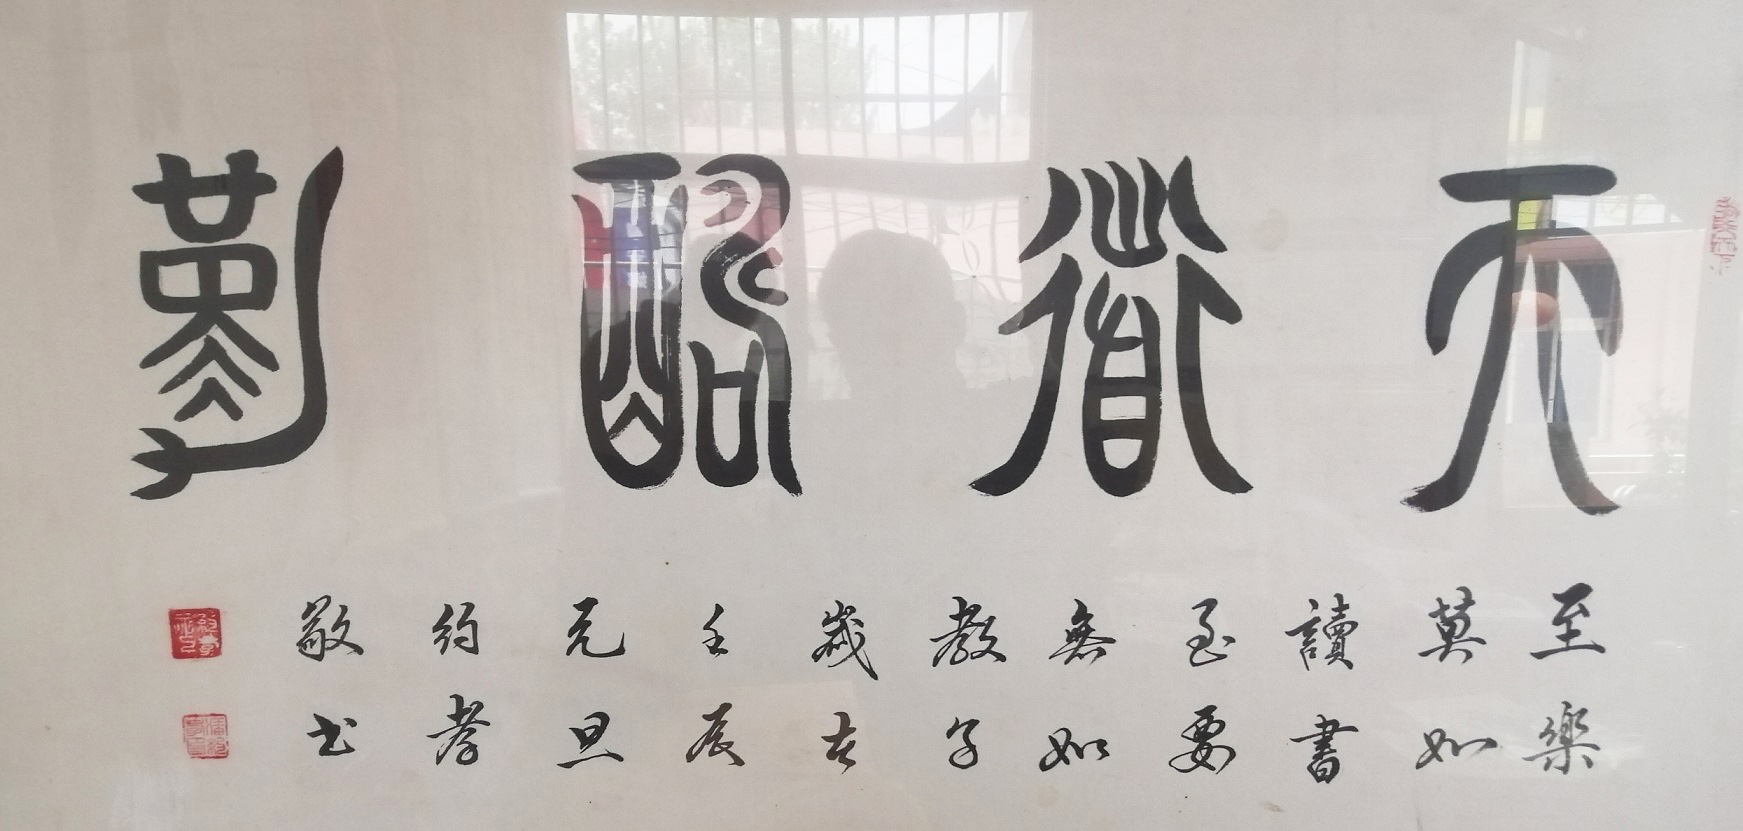 天道酬勤
至樂
莫如
讀書
至要
無如
教子
歲在
壬辰
元旦
約孝
敬书